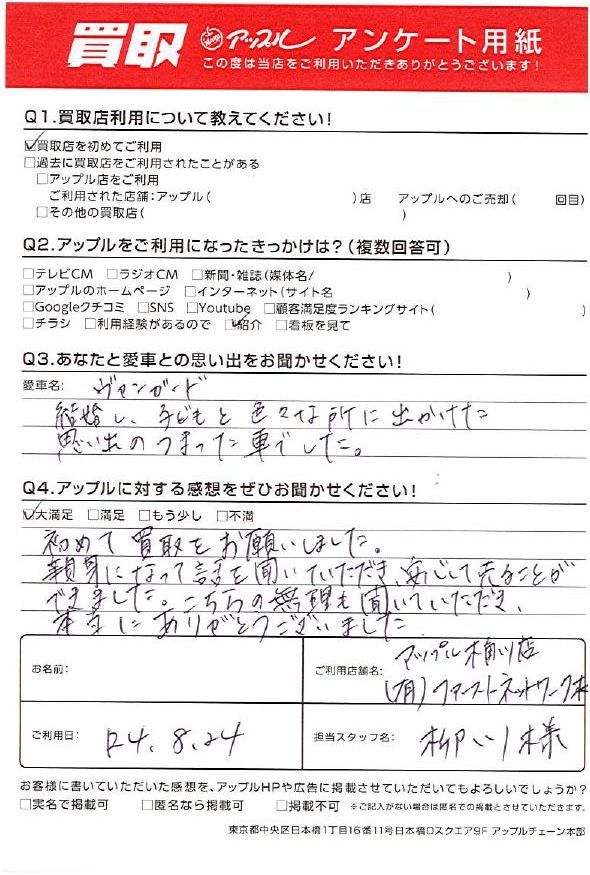 買取 アップル アンケート用紙
この度は当店をご利用いただきありがとうございます!
Q1.買取店利用について教えてください!
☑買取店を初めてご利用
□過去に買取店をご利用されたことがある
□アップル店をご利用
ご利用された店舗:アップル( )店 アップルへのご売却( 回目)
□その他の買取店( )
Q2.アップルをご利用になったきっかけは?(複数回答可)
□テレビCM □ラジオCM □新聞・雑誌(媒体名/ )
□アップルのホームページ □インターネット(サイト名 )
□Googleクチコミ □SNS □Youtube □顧客満足度ランキングサイト( )
□チラシ □利用経験があるので ☑紹介 □看板を見て
Q3.あなたと愛車との思い出をお聞かせください!
愛車名: ヴァンガード
結婚し、子どもと色々な所に出かけた
思い出のつまった車でした。
Q4.アップルに対する感想をぜひお聞かせください!
☑大満足 □満足 □もう少し □不満
初めて買取をお願いしました。
親身になって話を聞いていただき、安心して売ることが
できました。こちらの無理も聞いていただき、
本当にありがとうございました
お名前:
ご利用店舗名: アップル桶川店
(有)ファーストネットワーク
ご利用日: R4.8.24
担当スタッフ名: 柳川様
お客様に書いていただいた感想を、アップルHPや広告に掲載させていただいてもよろしいでしょうか?
□実名で掲載可 □匿名なら掲載可 □掲載不可 ※ご記入がない場合は匿名での掲載とさせていただきます。
東京都中央区日本橋1丁目16番11号日本橋Dスクエア9F アップルチェーン本部